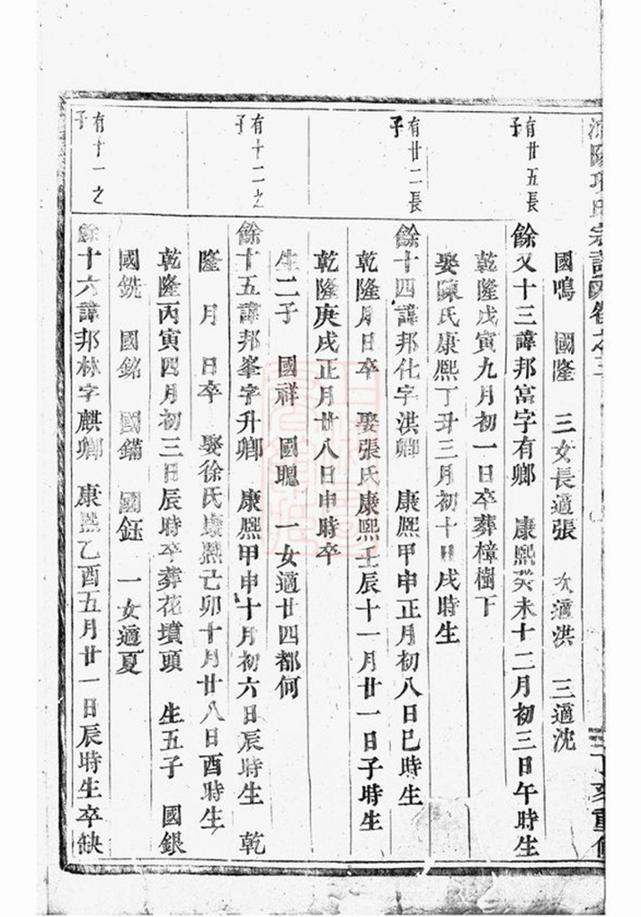 國鳴　國隆　三女長適張　次適洪　三適沈
有廿五長
子
餘又十三諱邦富字有卿　康熙癸未十二月初三日午時生
乾隆戊寅九月初一日卒葬樟樹下
娶陳氏康熙丁丑三月初十日戌時生
有廿二長
子
餘十四諱邦仕字洪卿　康熙甲申正月初八日巳時生
乾隆　月日卒　娶張氏康熙壬辰十一月廿一日子時生
乾隆庚戌正月廿八日申時卒
生二子　國祥　國聰　一女適廿四都何
有十二之
子
餘十五諱邦峯字升卿　康熙甲申十月初六日辰時生　乾
隆　月　日卒　娶徐氏康熙己卯十月廿八日酉時生
乾隆丙寅四月初三日辰時卒葬花墳頭　生五子　國銀
國銑　國銘　國鏋　國鈺　一女適夏
有十一之
子
餘十六諱邦林字麒卿　康熙乙酉五月廿一日辰時生卒缺